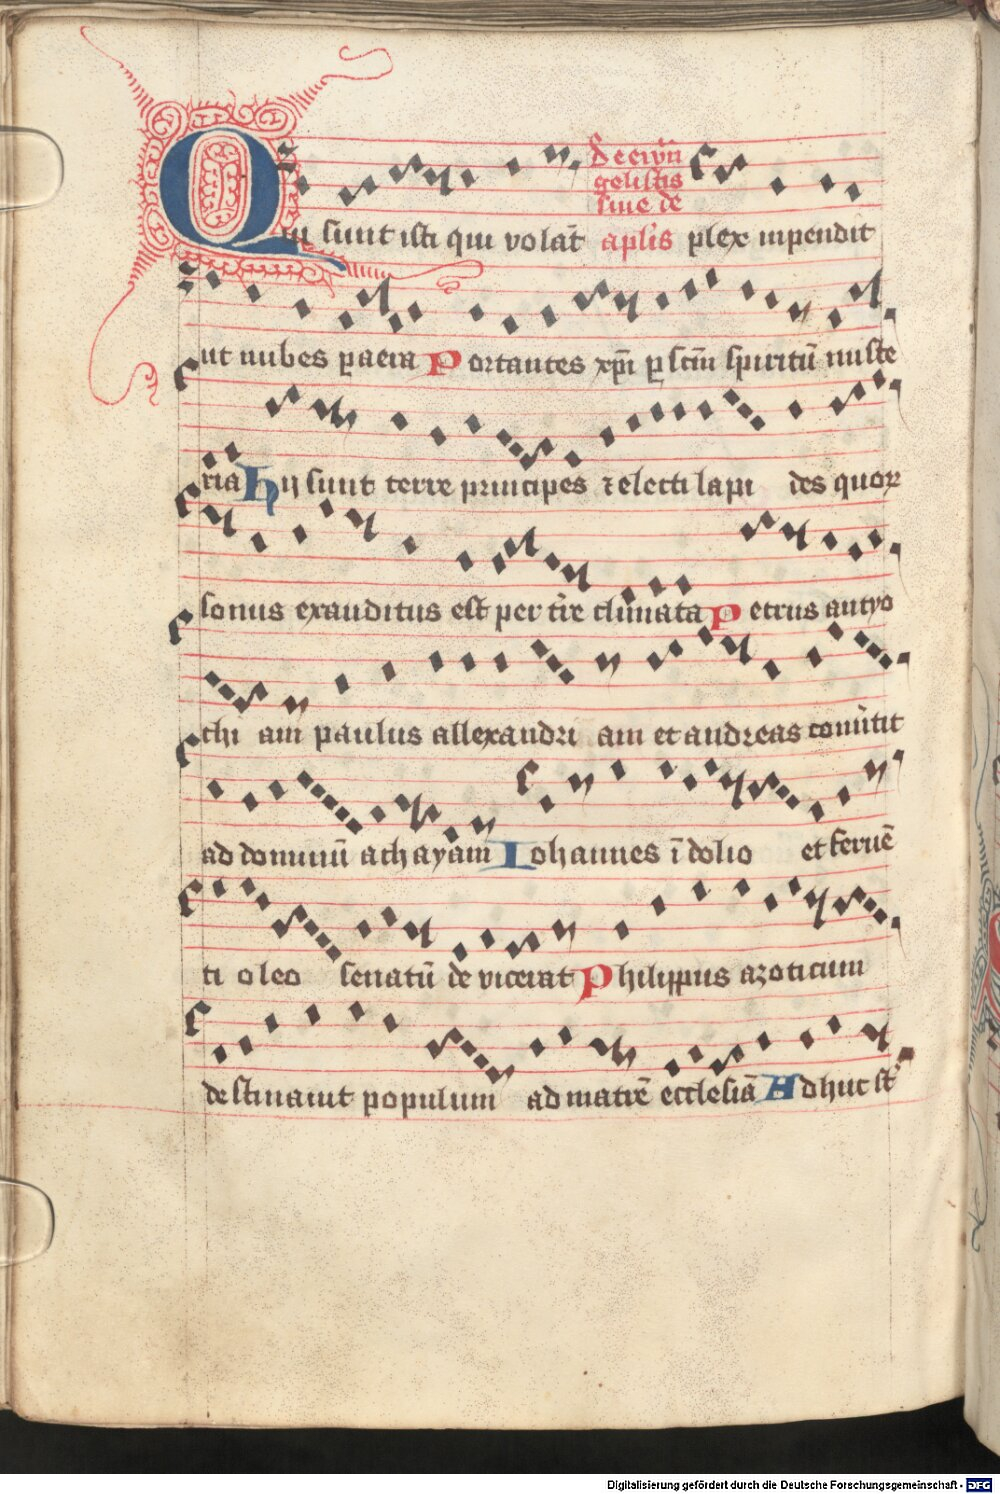 De ewan
gelistis
siue de
Qui sunt isti qui volāt aplis plex inpendit
ut nubes p aera Portantes xpm p scm spiritū nuste
ria hij sunt terre principes ⁊ electi lapi des quoꝝ
sonus exauditus est per tre climata Petrus antyo
chi am paulus allexandri am et andreas conūtit
ad dominū achayam Iohannes ī dolio et feruē
ti oleo senatū de vicerat Philippus azoticum
destinauit populum ad matrē ecclesiā Adhuc st
Digitalisierung gefördert durch die Deutsche Forschungsgemeinschaft - DFG